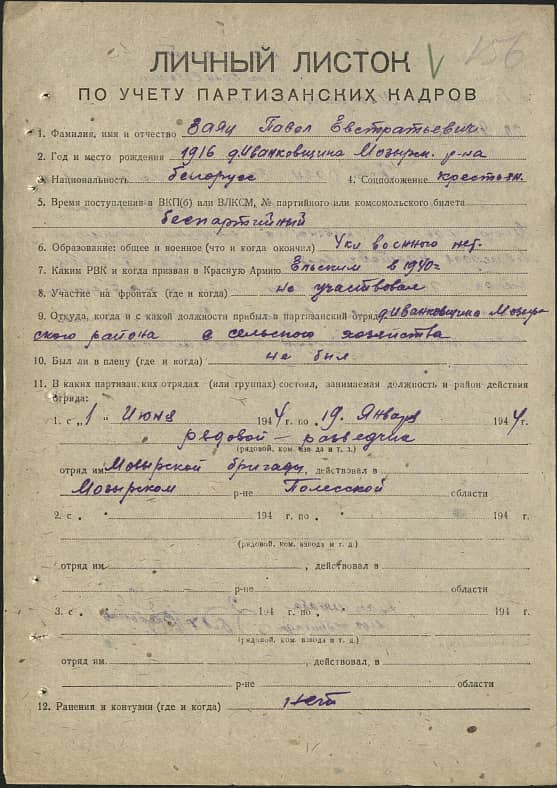 156
ЛИЧНЫЙ ЛИСТОК
ПО УЧЕТУ ПАРТИЗАНСКИХ КАДРОВ
1. Фамилия, имя и отчество Заяц Павел Евстратьевич
2. Год и место рождения 1916 д. Иванковщина Мозырк. р-на
3. Национальность белорусс 4. Соцположение крестьян.
5. Время поступления в ВКП(б) или ВЛКСМ, № партийного или комсомольского билета
беспартийный
6. Образование: общее и военное (что и когда окончил) 4 кл военного нет.
7. Каким РВК и когда призван в Красную Армию Ельским в 1940г
8. Участие на фронтах (где и когда) не участвовал
9. Откуда, когда и с какой должности прибыл в партизанский отряд д. Иванковщина Мозыр
ского района с сельского хозяйства
10. Был ли в плену (где и когда) не был
11. В каких партизан.ких отрядах (или группах) состоял, занимаемая должность и район действия
отряда:
1. с „1 " Июня 1944 г. по 19. Января 1944 г.
рядовой — разведчик
(рядовой, ком. взвода и т. д.)
отряд им Мозырской бригады, действовал в
Мозырком р-не Полесской области
2. с 194 г. по 194 г.
(рядовой, ком. взвода и т. д.)
отряд им. , действовал в
р-не области
3. с 194 г. по 194 г.
(рядовой, ком. взвода и т. д.)
отряд им. , действовал, в
р-не области
12. Ранения и контузии (где и когда) нет